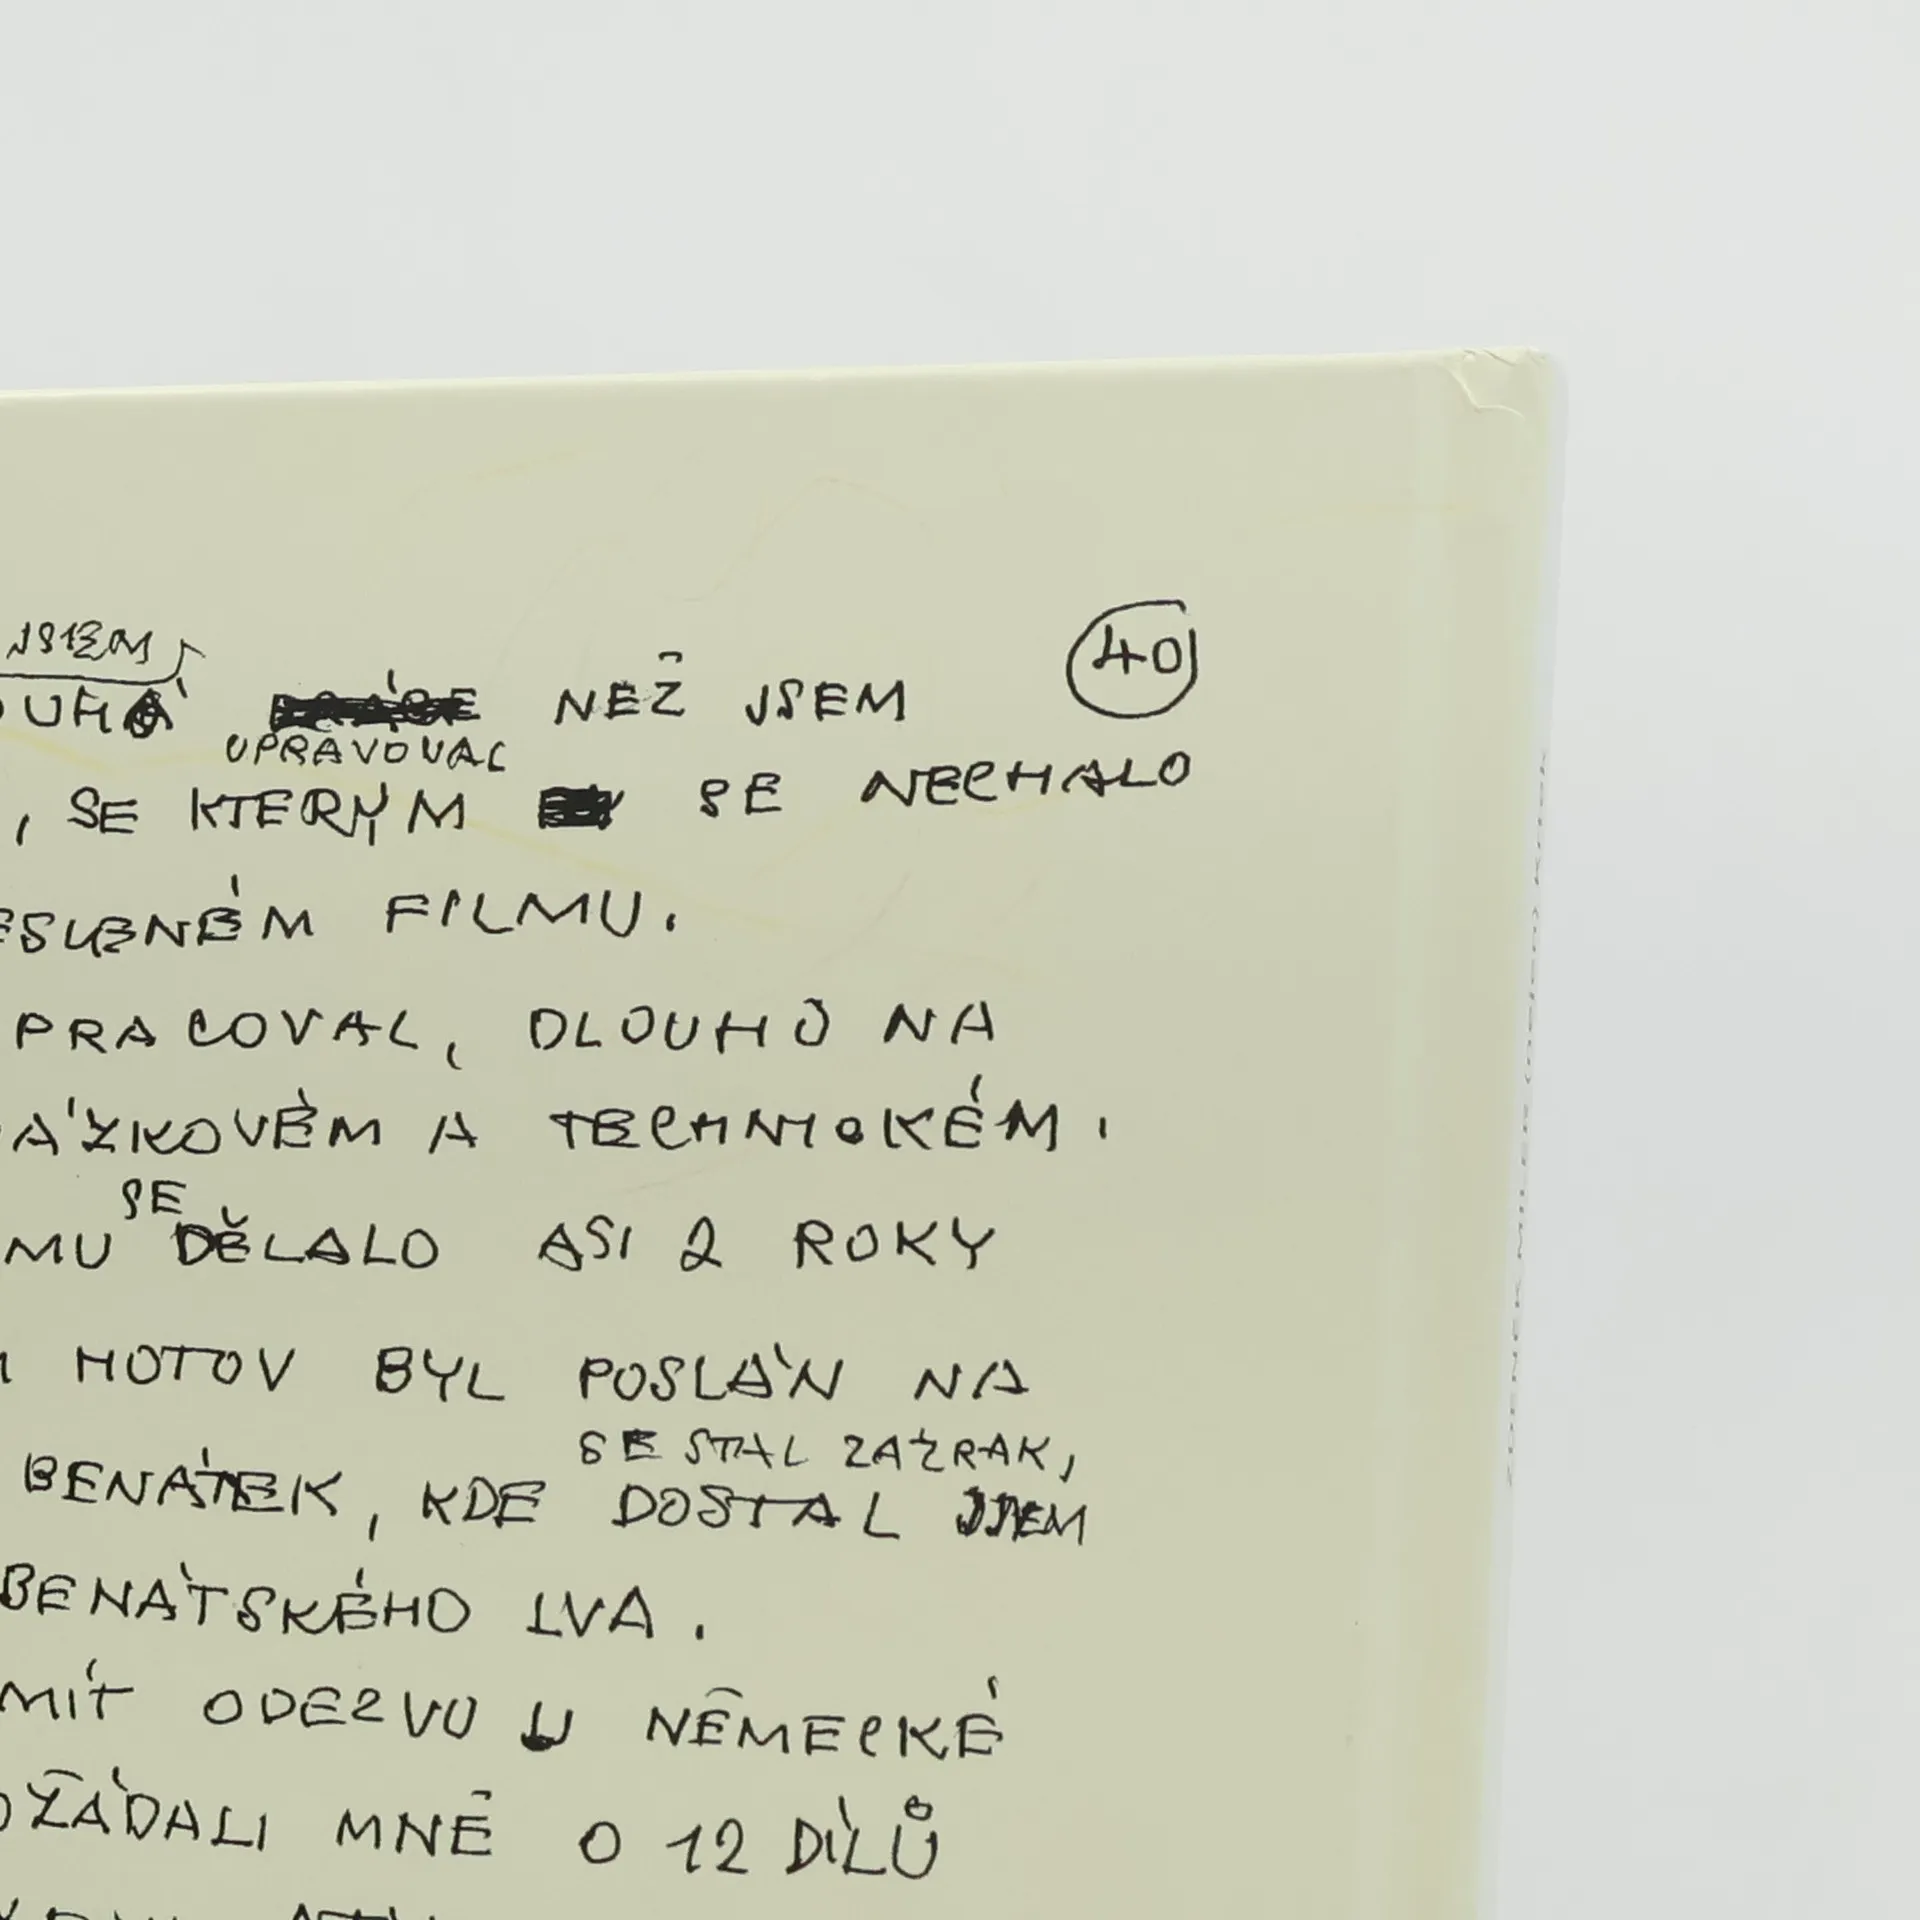 JSEM
40
NEŽ JSEM
UPRAVOVAL
, SE KTERÝM SE NECHALO
FILMU.
PRACOVAL, DLOUHO NA
ÁZKOVÉM A TECHNICKÉM.
SE
MU DĚLALO ASI 2 ROKY
HOTOV BYL POSLÁN NA
SE STAL ZÁZRAK,
BENÁTEK, KDE DOSTAL JSEM
BENÁTSKÉHO LVA.
MÍT ODEZVU U NĚMECKÉ
OŽÁDALI MNĚ O 12 DÍLŮ